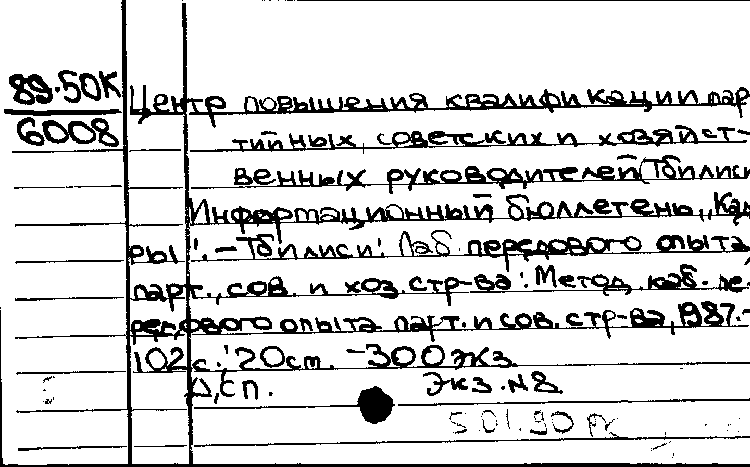 89-50К
6008
Центр повышения квалификации пар-
тийных, советских и хозяйст-
венных руководителей (Тбилиси
Информационный бюллетень „Кад
ры". – Тбилиси: Лаб. передового опыта
парт., сов. и хоз. стр-ва: Метод. каб. пе-
редового опыта парт. и сов. стр-ва, 1987.-
102 с.; 20 см. - 300 экз.
Дсп. Экз. №8
5.01.90